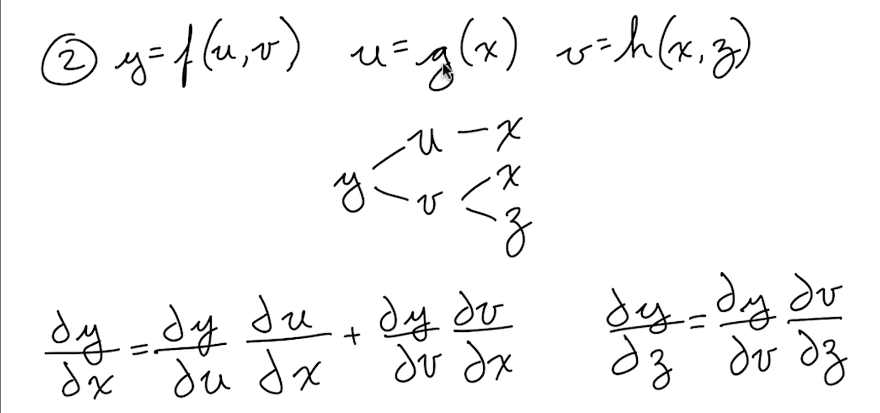 ② y=f(u,v) u=g(x) v=h(x,z)
u – x
y < v < x
z
∂y/∂x = ∂y/∂u ∂u/∂x + ∂y/∂v ∂v/∂x ∂y/∂z = ∂y/∂v ∂v/∂z